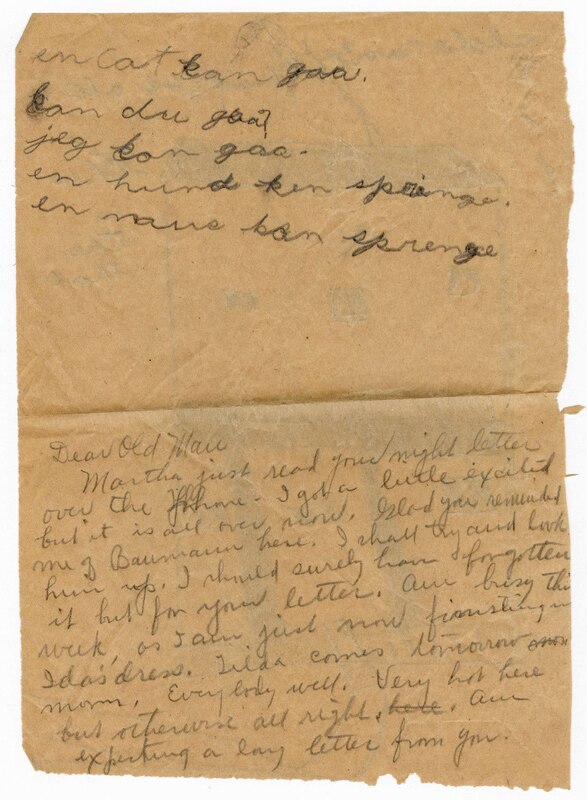 en Cat kan gaa.
kan du gaa?
jeg kan gaa.
en hund kan springe.
en maus kan sprenge
Dear Old Man
Martha just read your night letter
over the Phone - I got a little excited
but it is all over now. Glad you reminded
me of Baumann here. I shall try and look
him up. I should surely have forgotten
it but for your letter. Am busy this
week, as I am just now finishing up
Ida's dress. Tilda comes tomorrow
morn. Everybody well. Very hot here
but otherwise all right. here. Am
expecting a long letter from you.